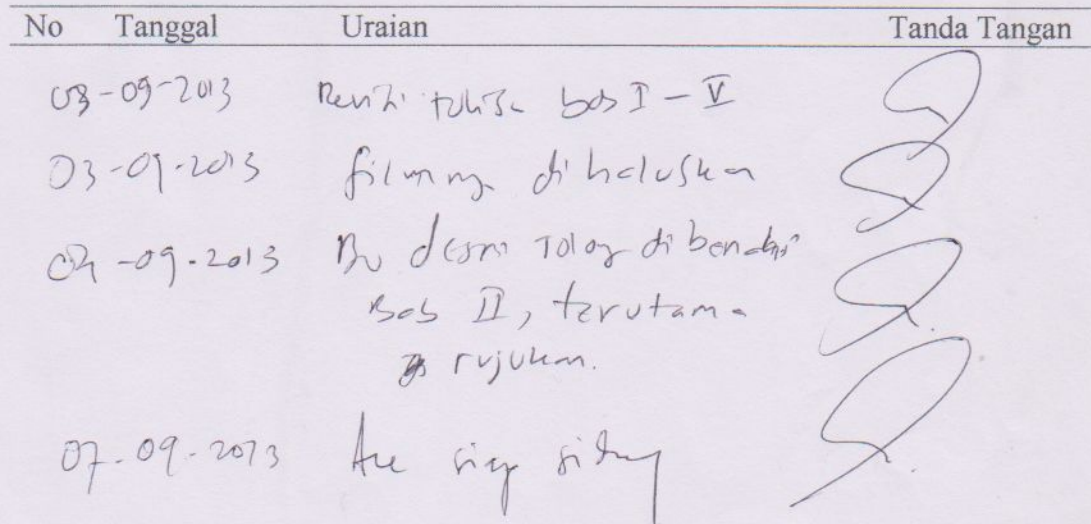 No Tanggal Uraian Tanda Tangan
03-09-2013 Revisi tulisa bab I - V
03-09-2013 filmnya dihaluskan
04-09-2013 Bu desmi tolog dibenahi
Bab II, terutama
rujukan.
07-09-2013 Acc siap sidang